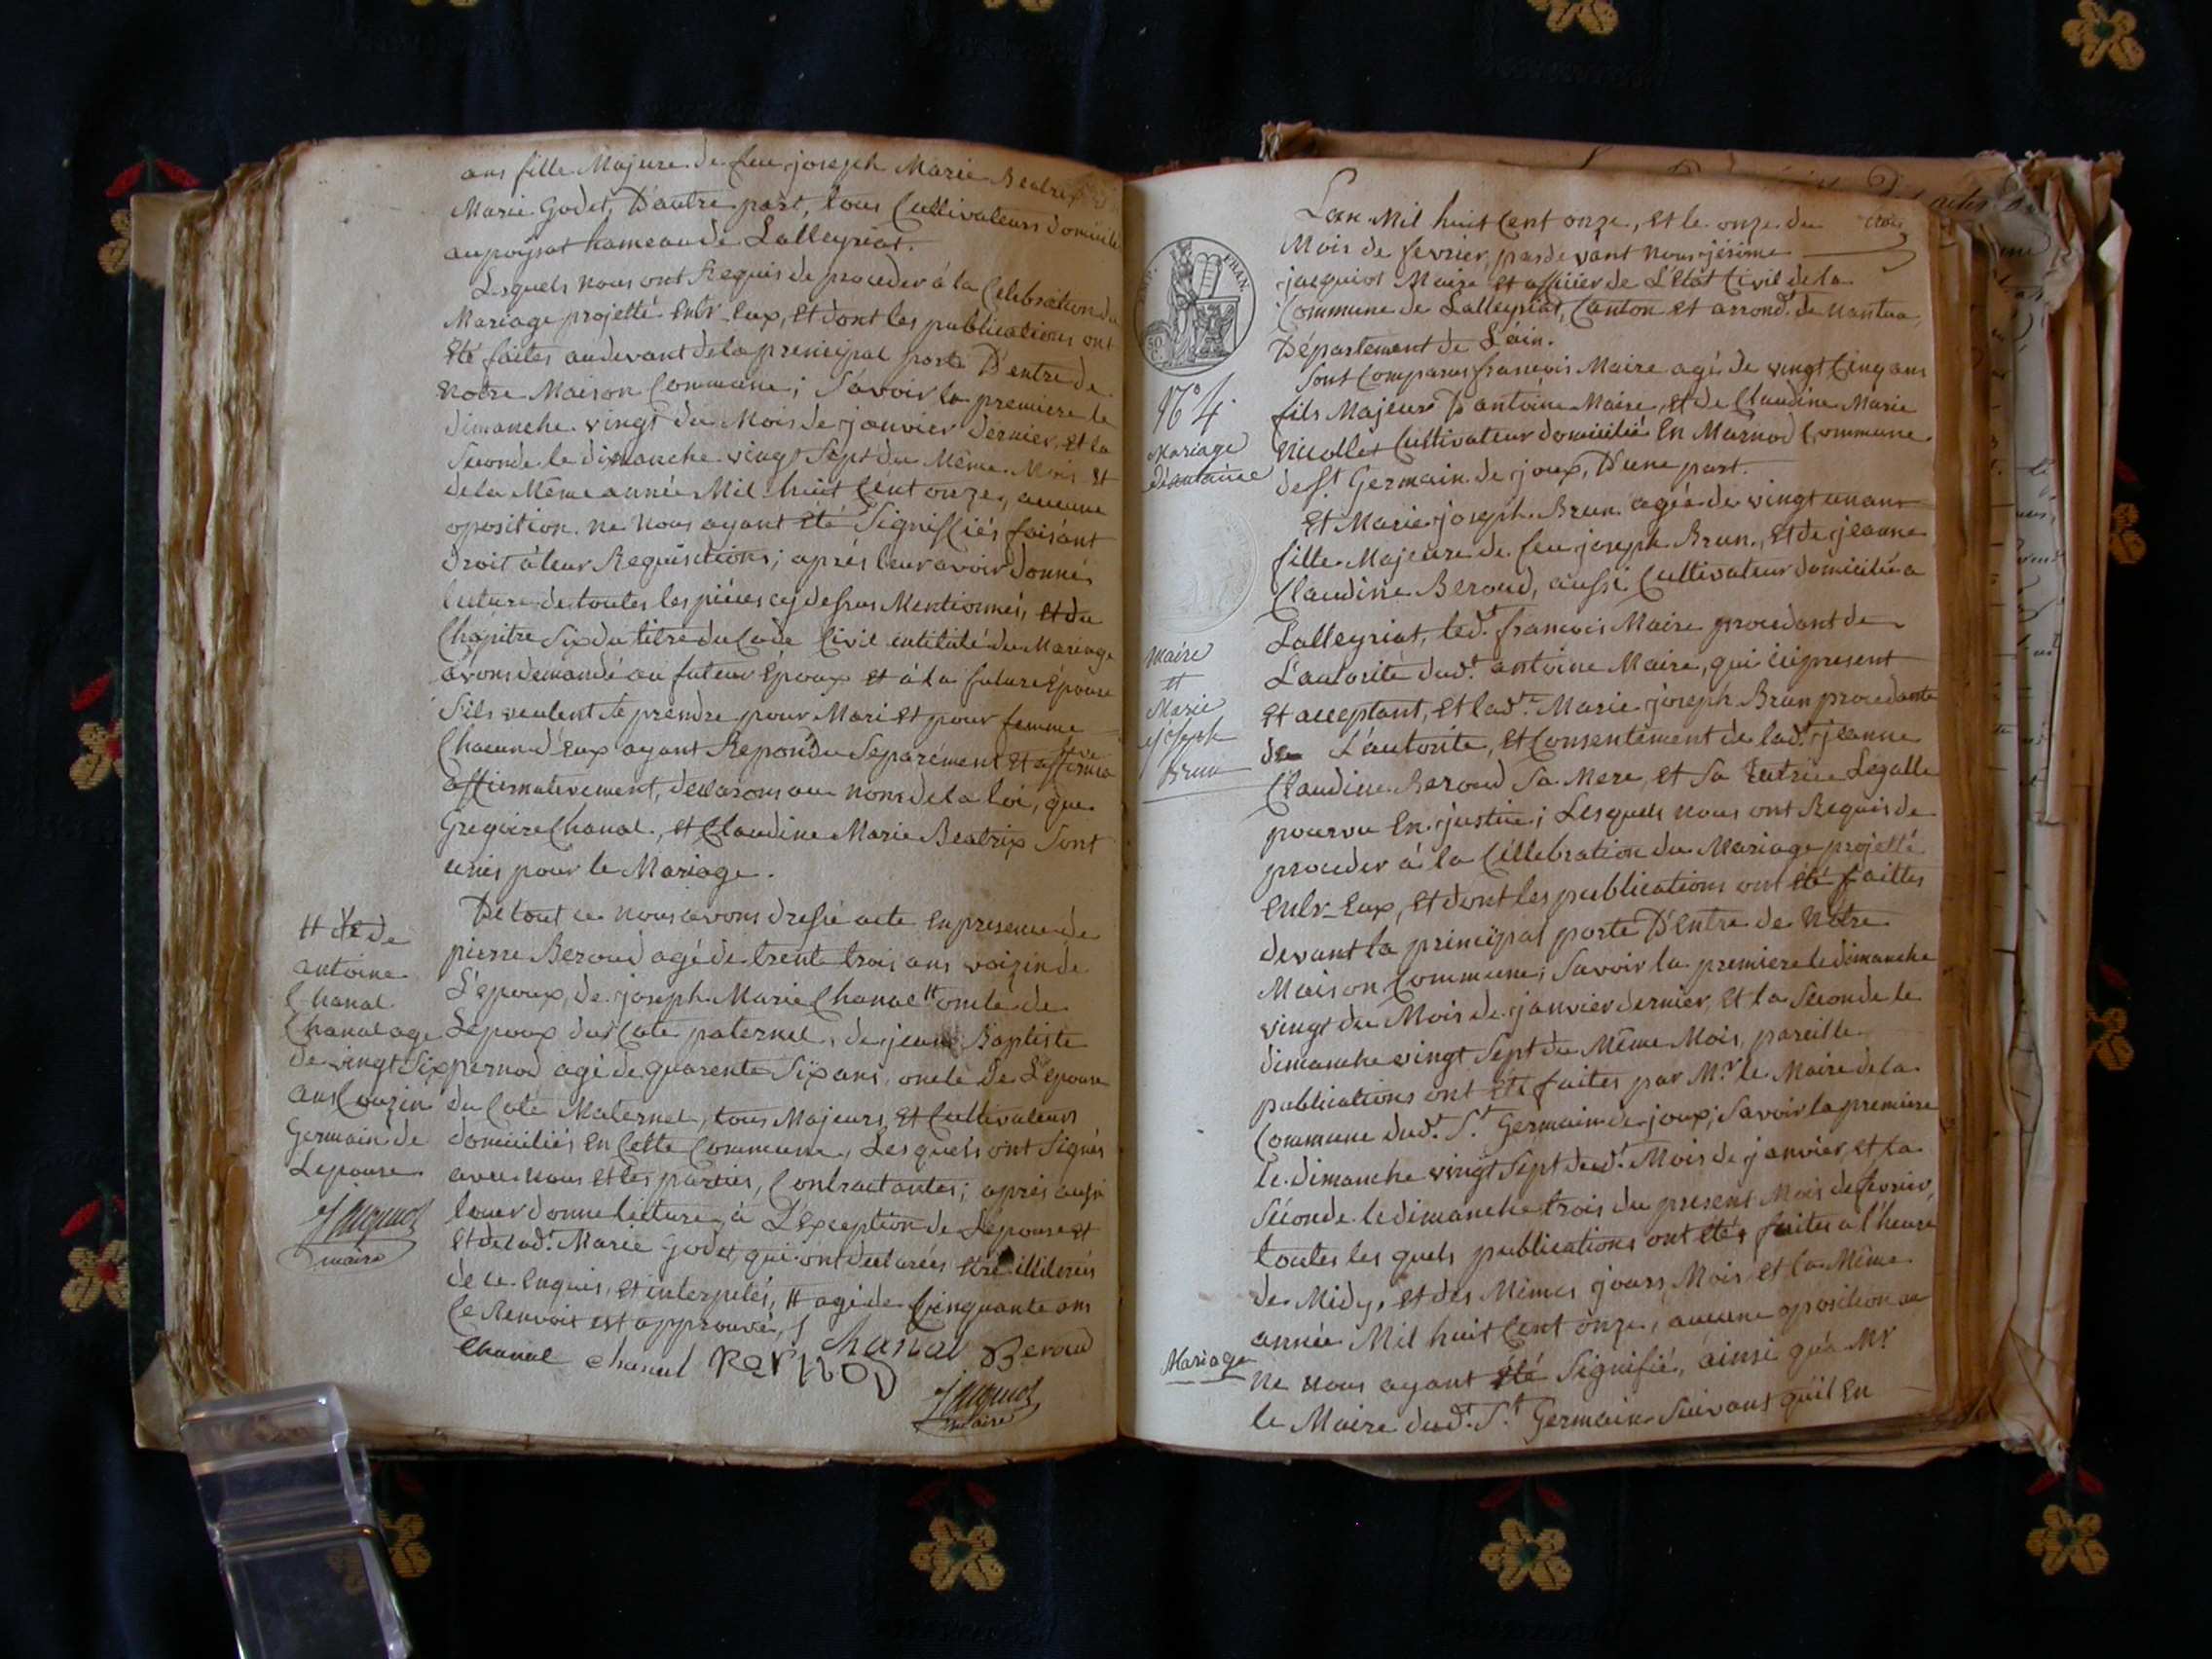 ans fille Majeure de feu joseph Marie Beatrix
Marie Godet, D'autre part, tous Cultivateurs domicilié
au poizat hameau de Lalleyriat.
Lesquels nous ont Requis de proceder à la Celebration du
Mariage projetté Entr'Eux, Et dont les publications ont
Eté faites au devant de la principal porte D'entre de
Notre Maison Commune; Savoir la premiere le
dimanche vingt du Mois de janvier dernier, Et la
Seconde le dimanche vingt Sept du Même Mois Et
de la Même année Mil huit Cent onze, aucune
oposition ne Nous ayant Eté Signiffiés faisant
droit à leur Requisitions; aprés leur avoir donnés
lecture de toutes les piéces cy dessus Mentionnés, Et du
Chapitre Six du titre du Code Civil intitulé du Mariage
avons demandé au futeur Epoux Et à la future Epouse
S'ils veulent Se prendre pour Mari Et pour femme
Chacun d'Eux ayant Repondu Separément Et
affirmativement, declarons au nom de la loi, que
Gregoire Chanal, Et Claudine Marie Beatrix Sont
unis pour le Mariage.
De tout ce nous avons dressé acte En presence de
pierre Beroud agé de trente trois ans voizin de
L'epoux, de joseph Marie Chanal # oncle de
Lepoux du Coté paternel, de jean Baptiste
pernod agé de quarente Six ans, oncle De L'epouse
du Coté Maternel, tous Majeurs Et Cultivateurs
domiciliés En Cette Commune, Lesquels ont Signés
avec nous Et les parties, Contractantes; aprés aussi
leuer donne lecture, à L'Exception de Lepouse Et
Et de lad.e Marie Godet, qui ont declarées Etre illiterés
de ce Enquis, Et interpelés, # agé de Cinquante ans
Le Renvoit est approuvé,
Chanal Beroud
Chanal chanal PerNoD
Jacquiot
maire
# de
antoine
Chanal
Chanal age
de vingt Six
ans Couzin
Germain de
Lepouse
Jacquiot
maire
Lan Mil huit Cent onze, Et le onze du
Mois de fevrier, pardevant Nous jérôme
jacquiot Maire Et officier de L'Etat Civil de la
Commune de Lalleyriat, Canton et arrond.t de Nantua,
Département de L'ain.
EMP. FRAN.
50 C.
Sont Comparus francois Maire agé de vingt Cinq ans
fils Majeur D'antoine Maire, Et de Claudine Marie
Nicollet Cultivateur domicilié En Marnod Commune
de S.t Germain de joux, D'une part.
Et Marie joseph Brun agée de vingt un ans
fille Majeure de feu joseph Brun, Et de jeanne
Claudine Beroud, aussi Cultivateur domiciliée a
Lalleyriat, led.t francois Maire procedant de
L'autorité dud.t antoine Maire, qui ici present
Et acceptant, Et lad.te Marie joseph Brun procedante
de L'autorite, Et Consentement de lad.te jeanne
Claudine Beroud Sa Mere, Et Sa Tutrice Legalle
pourvu En justice; Lesquels nous ont Requis de
proceder à la Céllebration du Mariage projetté
Entr'Eux, Et dont les publications ont Eté faittes
devant la principal porte D'Entre de Nôtre
Maison Commune; Savoir la premiere le dimanche
vingt du Mois de janvier dernier, Et la Seconde le
dimanche vingt Sept du Même Mois, pareille
publications ont Eté faites par M.r le Maire de la
Commune dud.t S.t Germain de joux; Savoir la premiere
le dimanche vingt Sept dud.t Mois de janvier, Et la
Séconde le dimanche trois du present Mois de fevrier,
toutes les quels publications ont Etés faites a l'heure
de Midy, Et des Mêmes jours Mois Et la Même
année Mil huit Cent onze, aucune oposition ne
Ne nous ayant Eté Signifié, ainsi qu'à M.r
le Maire dud.t S.t Germain Suivant qu'il En
N.o 4.
Mariage
D'antoine
Maire
et
Marie
joseph
Brun
Mariage